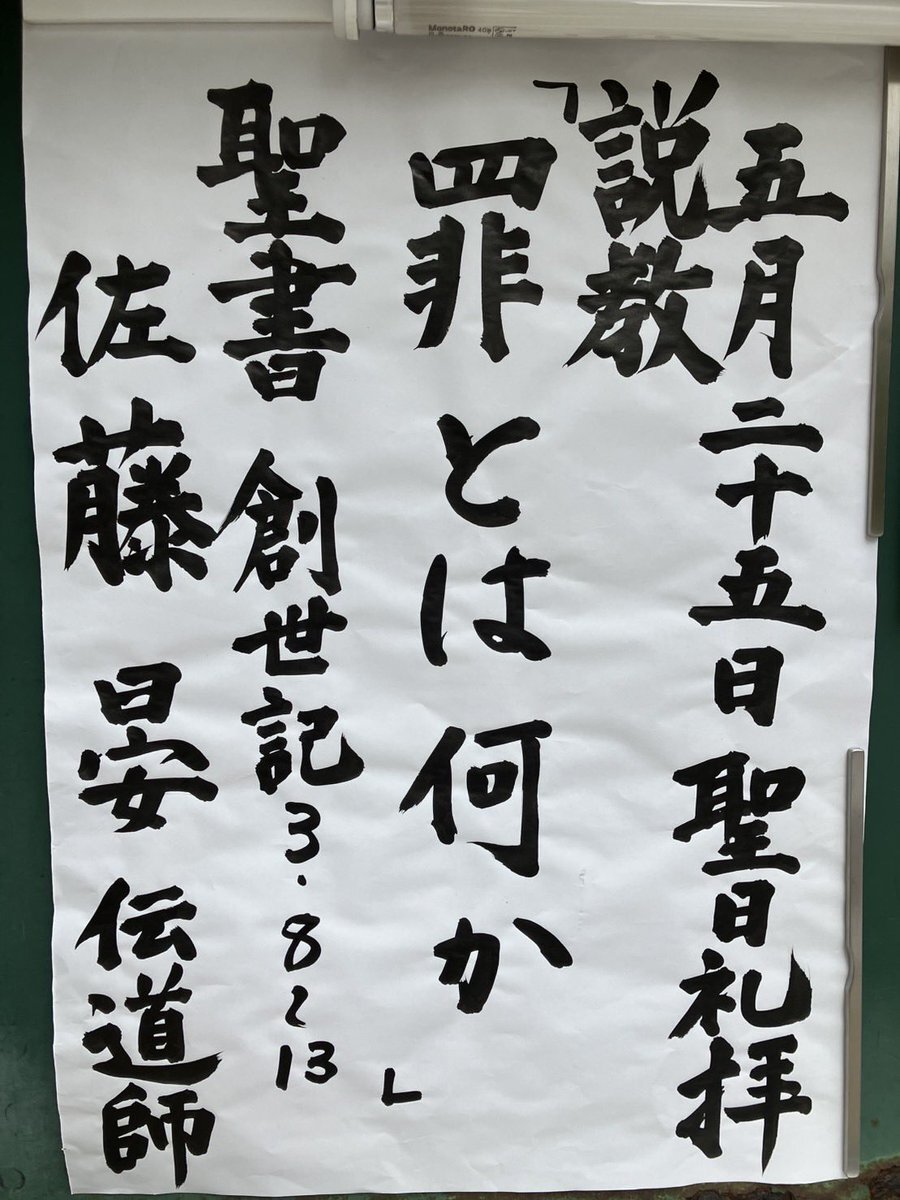 MonotaRO 40形
五月二十五日聖日礼拝
説教
「罪とは何か」
聖書 創世記3・8〜13
佐藤 晏 伝道師